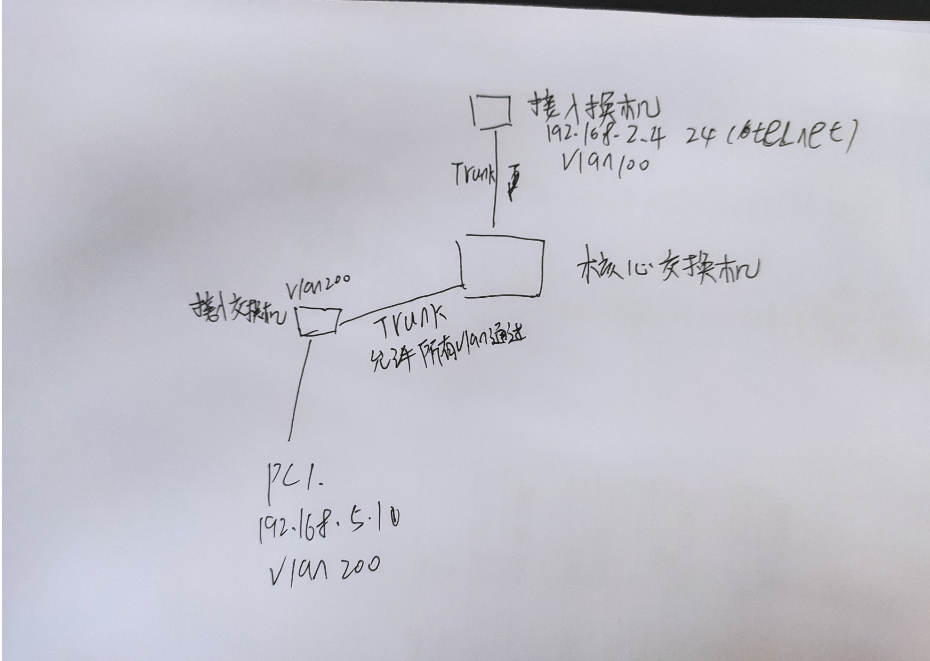 接入换机
192.168.2.4 24 (telnet)
Vlan100
Trunk
核心交换机
Vlan200
接入交换机
Trunk
允许所有vlan通过
PC1.
192.168.5.10
Vlan 200